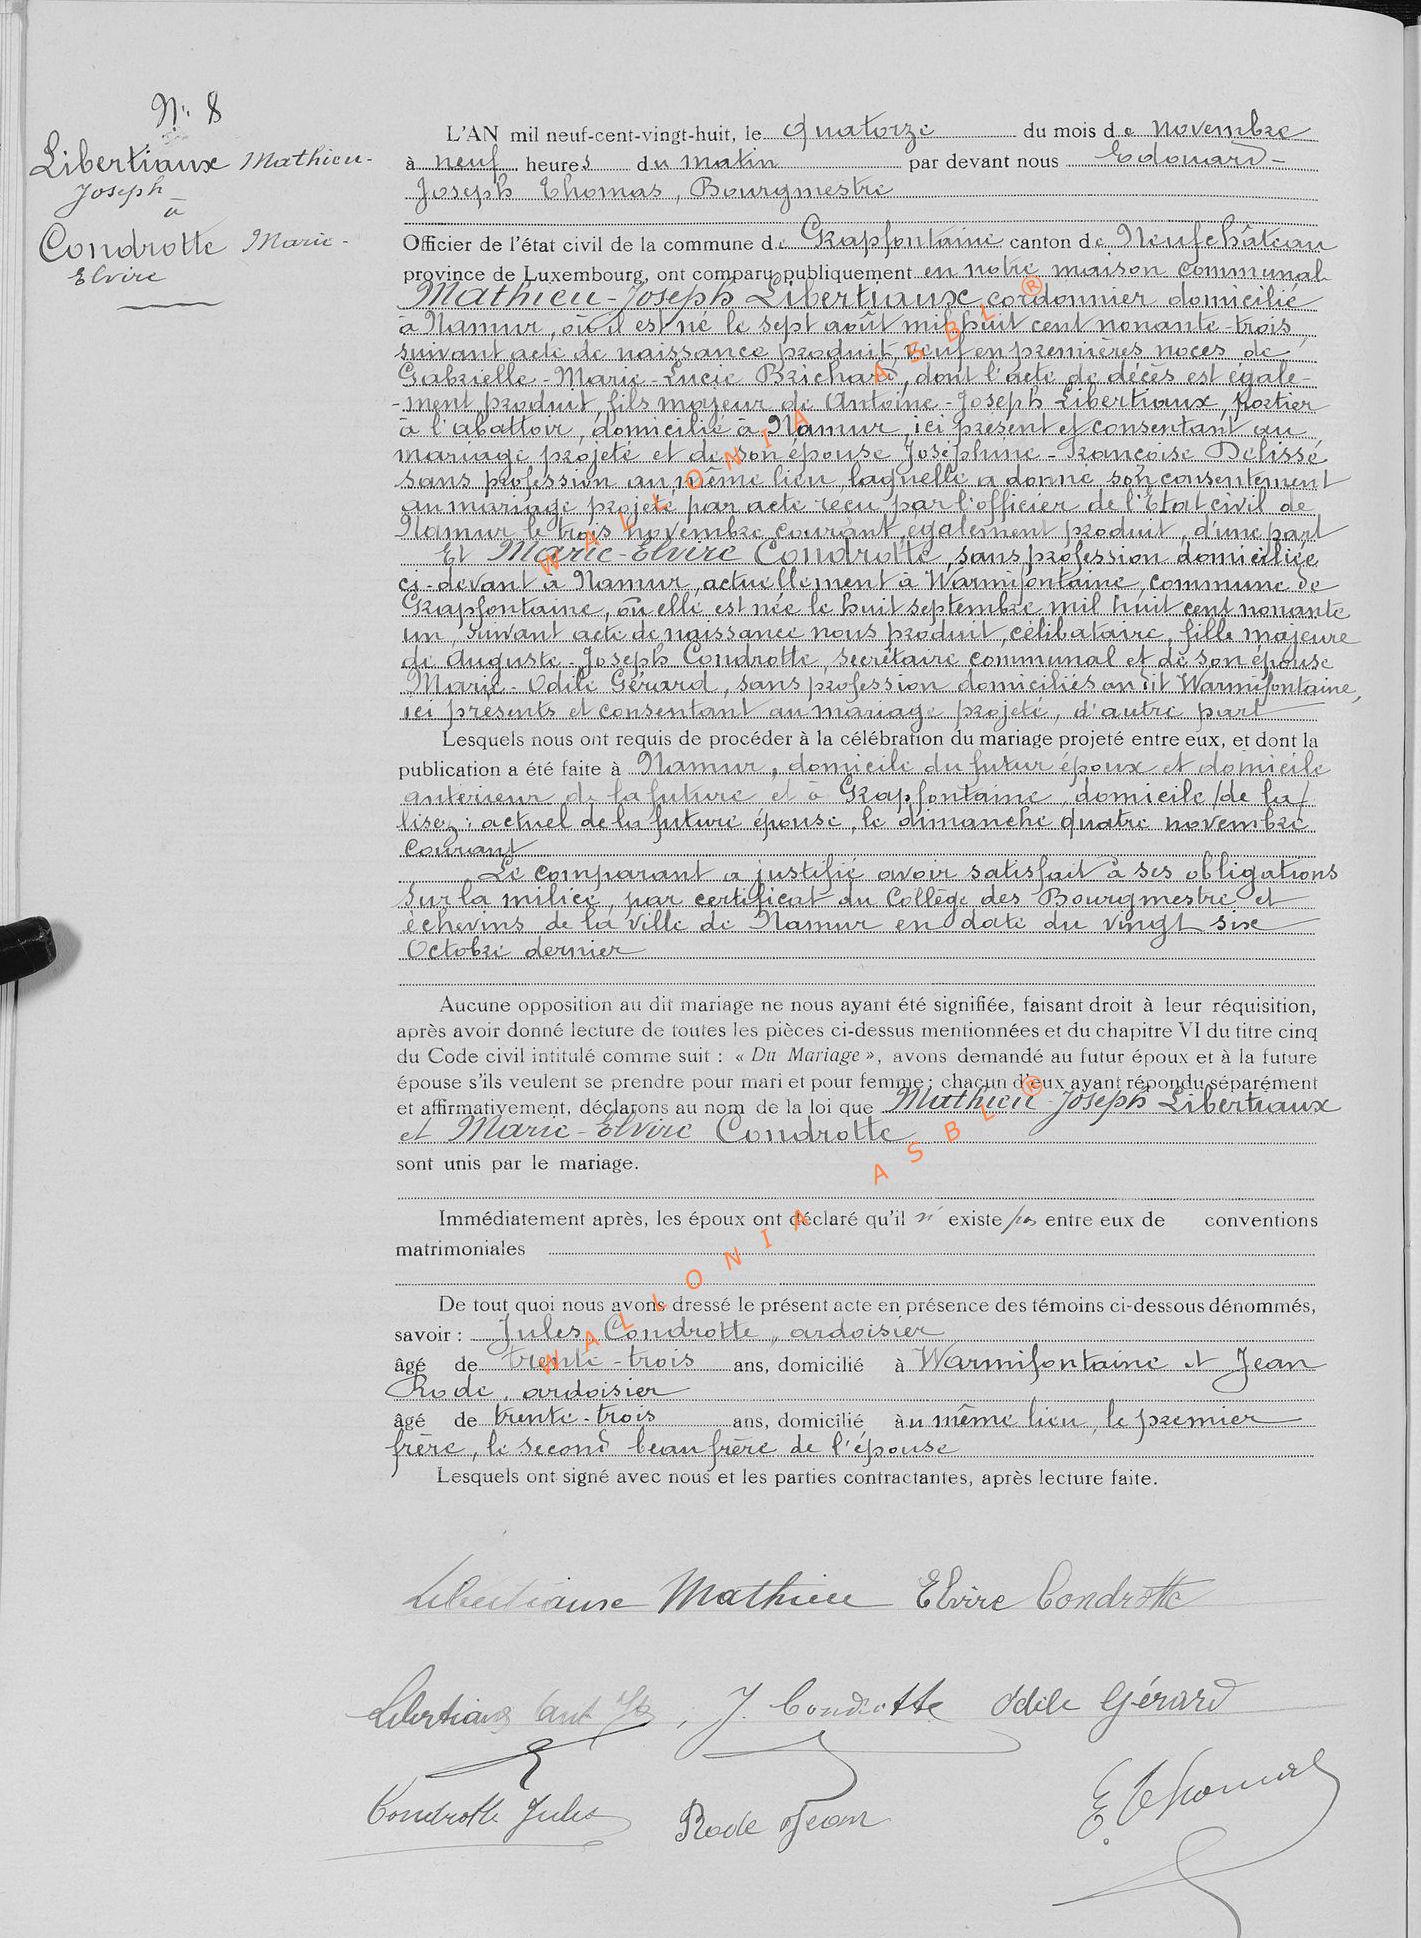 N° 8
Libertiaux Mathieu-
Joseph
à
Condrotte Marie-
Elvire
L'AN mil neuf-cent-vingt-huit, le quatorze du mois de novembre
à neuf heures du matin par devant nous Edouard-
Joseph Thomas, Bourgmestre
Officier de l'état civil de la commune de Grapfontaine canton de Neufchâteau
province de Luxembourg, ont comparu publiquement en notre maison communal
Mathieu-Joseph Libertiaux, cordonnier domicilié
à Namur, où il est né le sept août mil huit cent nonante-trois,
suivant acte de naissance produit, veuf en premières noces de
Gabrielle-Marie-Lucie Brichard, dont l'acte de décès est égale-
-ment produit, fils majeur de Antoine-Joseph Libertiaux, portier
à l'abattoir, domicilié à Namur, ici présent et consentant au
mariage projeté et de son épouse Joséphine-Françoise Delissé
sans profession au même lieu, laquelle a donné son consentement
au mariage projeté, par acte reçu par l'officier de l'Etat civil de
Namur le trois novembre courant, également produit, d'une part
Et Marie-Elvire Condrotte, sans profession domiciliée
ci-devant à Namur, actuellement à Warmifontaine, commune de
Grapfontaine, où elle est née le huit septembre mil huit cent nonante
un, suivant acte de naissance nous produit, célibataire, fille majeure
de Auguste-Joseph Condrotte, secrétaire communal et de son épouse
Marie-Odile Gérard, sans profession domiciliés au dit Warmifontaine,
ici présents et consentant au mariage projeté, d'autre part
Lesquels nous ont requis de procéder à la célébration du mariage projeté entre eux, et dont la
publication a été faite à Namur, domicile du futur époux et domicile
antérieur de la future et à Grapfontaine, domicile /de la/
lisez: actuel de la future épouse, le dimanche quatre novembre
courant
Le comparant a justifié avoir satisfait à ses obligations
sur la milice, par certificat du Collège des Bourgmestre et
échevins de la ville de Namur en date du vingt six
Octobre dernier
Aucune opposition au dit mariage ne nous ayant été signifiée, faisant droit à leur réquisition,
après avoir donné lecture de toutes les pièces ci-dessus mentionnées et du chapitre VI du titre cinq
du Code civil intitulé comme suit : « Du Mariage », avons demandé au futur époux et à la future
épouse s'ils veulent se prendre pour mari et pour femme ; chacun d'eux ayant répondu séparément
et affirmativement, déclarons au nom de la loi que Mathieu-Joseph Libertiaux
et Marie-Elvire Condrotte
sont unis par le mariage.
Immédiatement après, les époux ont déclaré qu'il n'existe pas entre eux de conventions
matrimoniales
De tout quoi nous avons dressé le présent acte en présence des témoins ci-dessous dénommés,
savoir : Jules Condrotte, ardoisier
âgé de trente-trois ans, domicilié à Warmifontaine et Jean
Rode, ardoisier
âgé de trente-trois ans, domicilié au même lieu, le premier
frère, le second beau frère de l'épouse
Lesquels ont signé avec nous et les parties contractantes, après lecture faite.
Libertiaux Mathieu Elvire Condrotte
Libertiaux Ant Jh J. Condrotte Odile Gérard
Condrotte Jules Rode Jean E. Thomas
WALLONIA ASBL ®
WALLONIA ASBL ®